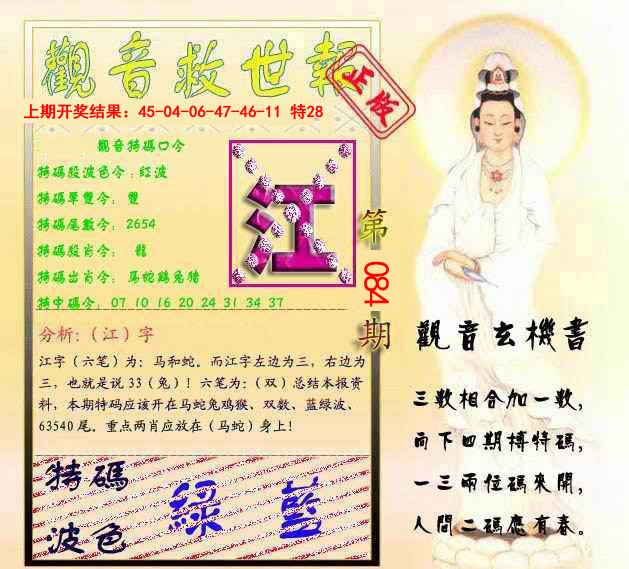 觀音救世報
正版
上期开奖结果: 45-04-06-47-46-11 特28
觀音特碼口令
特碼段波色令:紅波
特碼單雙令: 雙
特碼尾數令: 2654
特碼段肖令: 龍
特碼出肖令: 馬蛇鷄兔猪
特中碼令: 07 10 16 20 24 31 34 37
江
第084期
分析:(江)字
江字(六笔)为: 马和蛇。而江字左边为三, 右边为
三, 也就是说 33(兔)! 六笔为:(双)总结本报资
料, 本期特码应该开在马蛇兔鸡猴、双数、蓝绿波、
63540 尾。重点两肖应放在(马蛇)身上!
特碼
波色
綠藍
觀音玄機書
三數相合加一數,
向下四期搏特碼,
一三兩位碼來開,
人間二碼應有春。